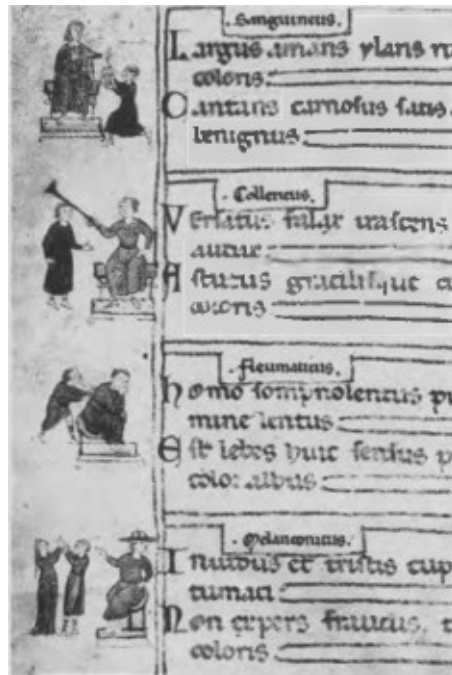 Sanguineus.
Largus amans ylaris
coloris:
Cantans carnosus satis
benignus:
Collericus.
Versatus fallax irascens
audax:
Astutus gracilisque
coloris:
fleumaticus.
homo sompnolentus
mine lentus:
Est hebes huic sensus p
color albus:
Melanconicus.
Inuidus et tristis cup
tumaci:
Non expers fraudis. t
coloris: